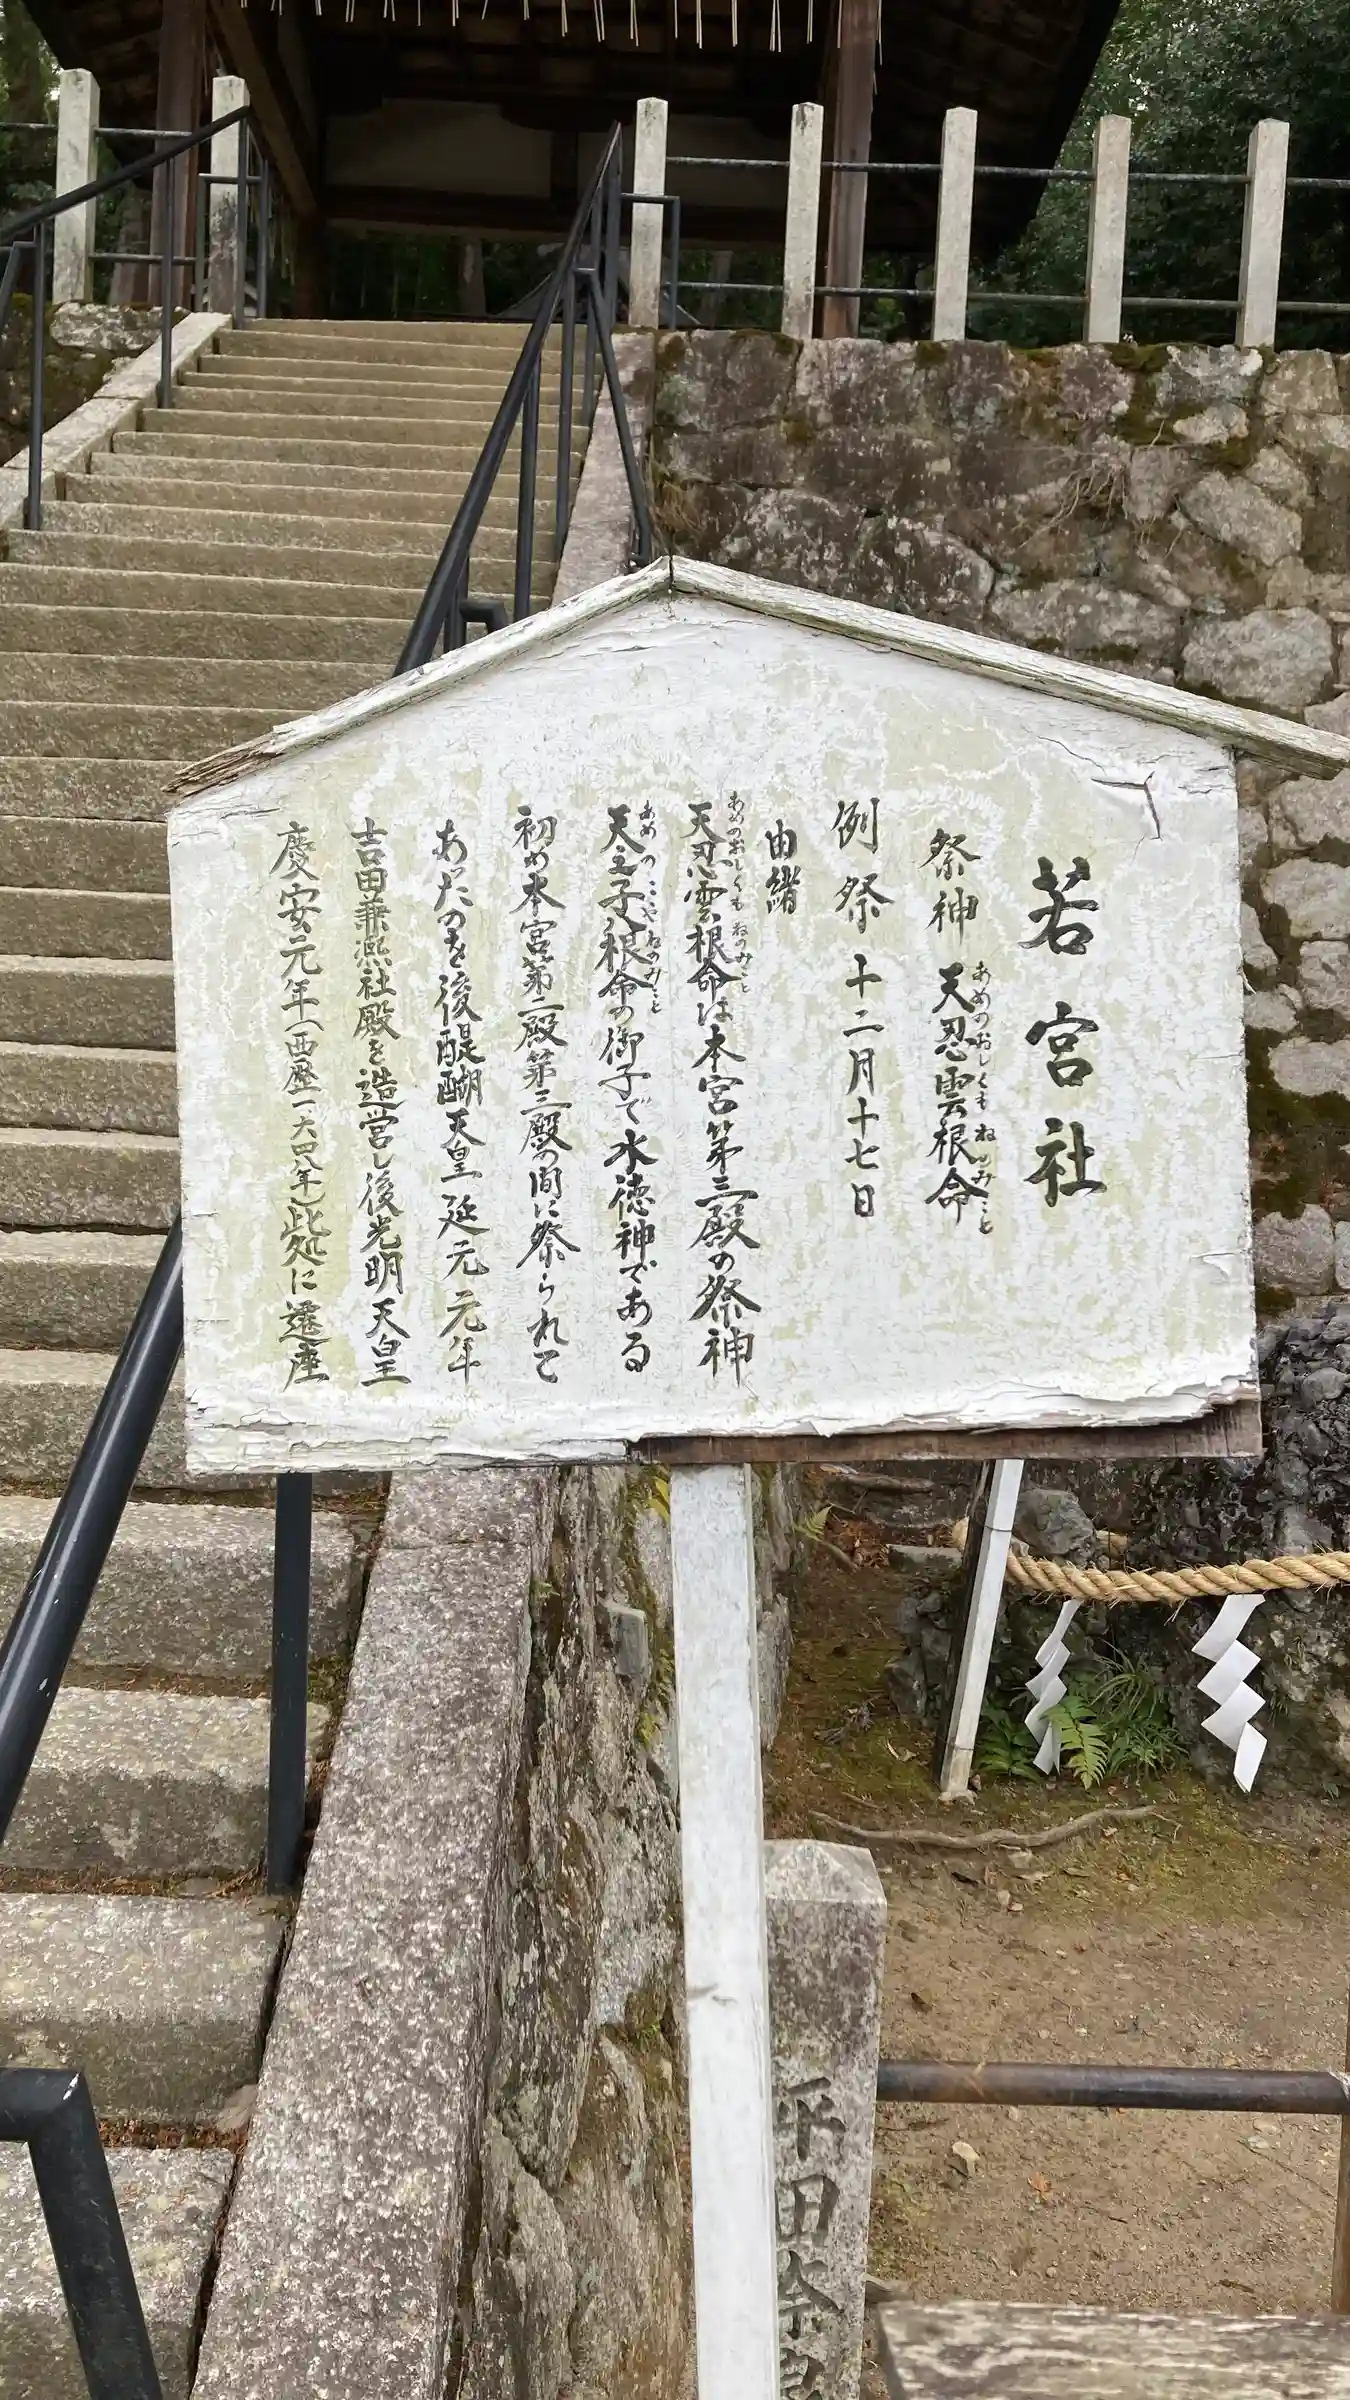 若宮社
祭神 天忍雲根命
あめのおしくもねのみこと
例祭 十二月十七日
由緒
天忍雲根命は本宮第三殿の祭神
あめのおしくもねのみこと
天之子八根命の御子で水徳神である
あめのこやねのみこと
初め本宮第二殿第三殿の間に祭られて
あったのを後醍醐天皇延元元年
吉田兼熙社殿を造営し後光明天皇
慶安元年(西歴一六四八年)此処に遷座
平田奈良